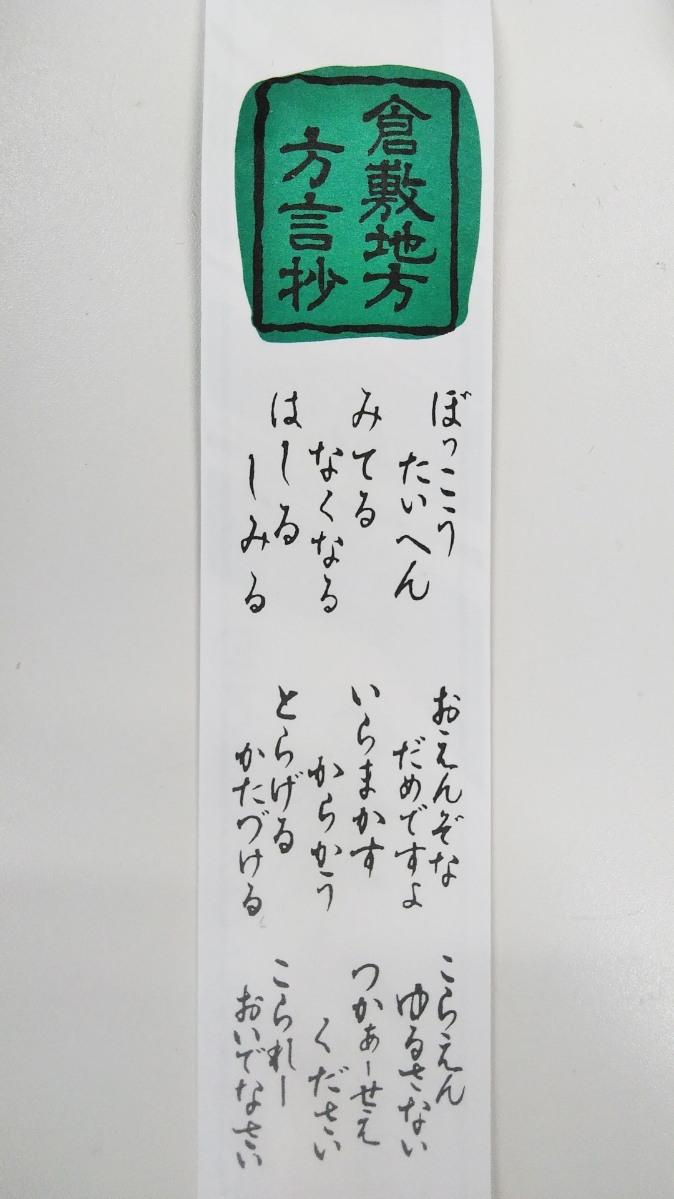 倉敷地方
方言抄
ぼっこう
たいへん
みてる
なくなる
はしる
しみる
おえんぞな
だめですよ
いらまかす
からかう
とらげる
かたづける
こらえん
ゆるさない
つかぁーせえ
ください
こられー
おいでなさい